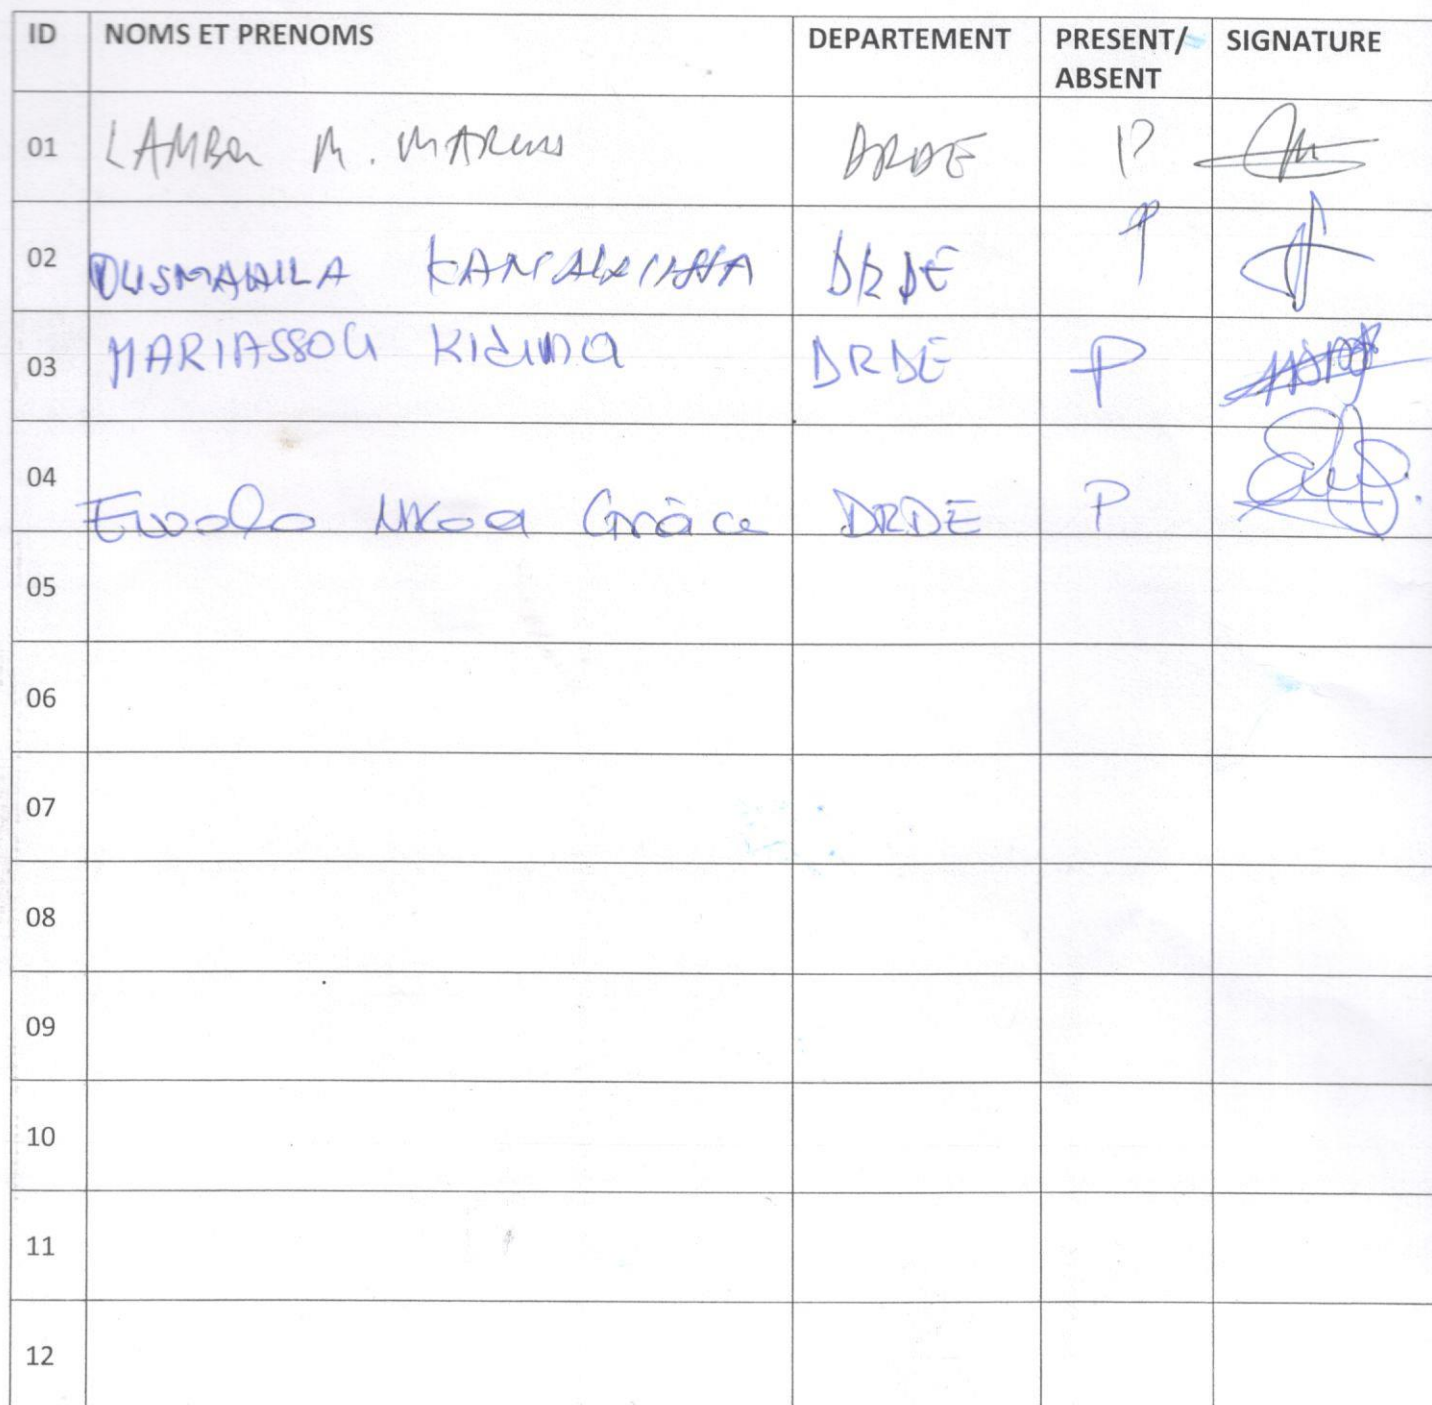 ID NOMS ET PRENOMS DEPARTEMENT PRESENT/ABSENT SIGNATURE
01 LAMBA M. MARCUS DRDE P
02 OUSMANILA DRDE P
03 MARIASSOU Kidina DRDE P
04 Ewolo Nkoa Grâce DRDE P
05
06
07
08
09
10
11
12